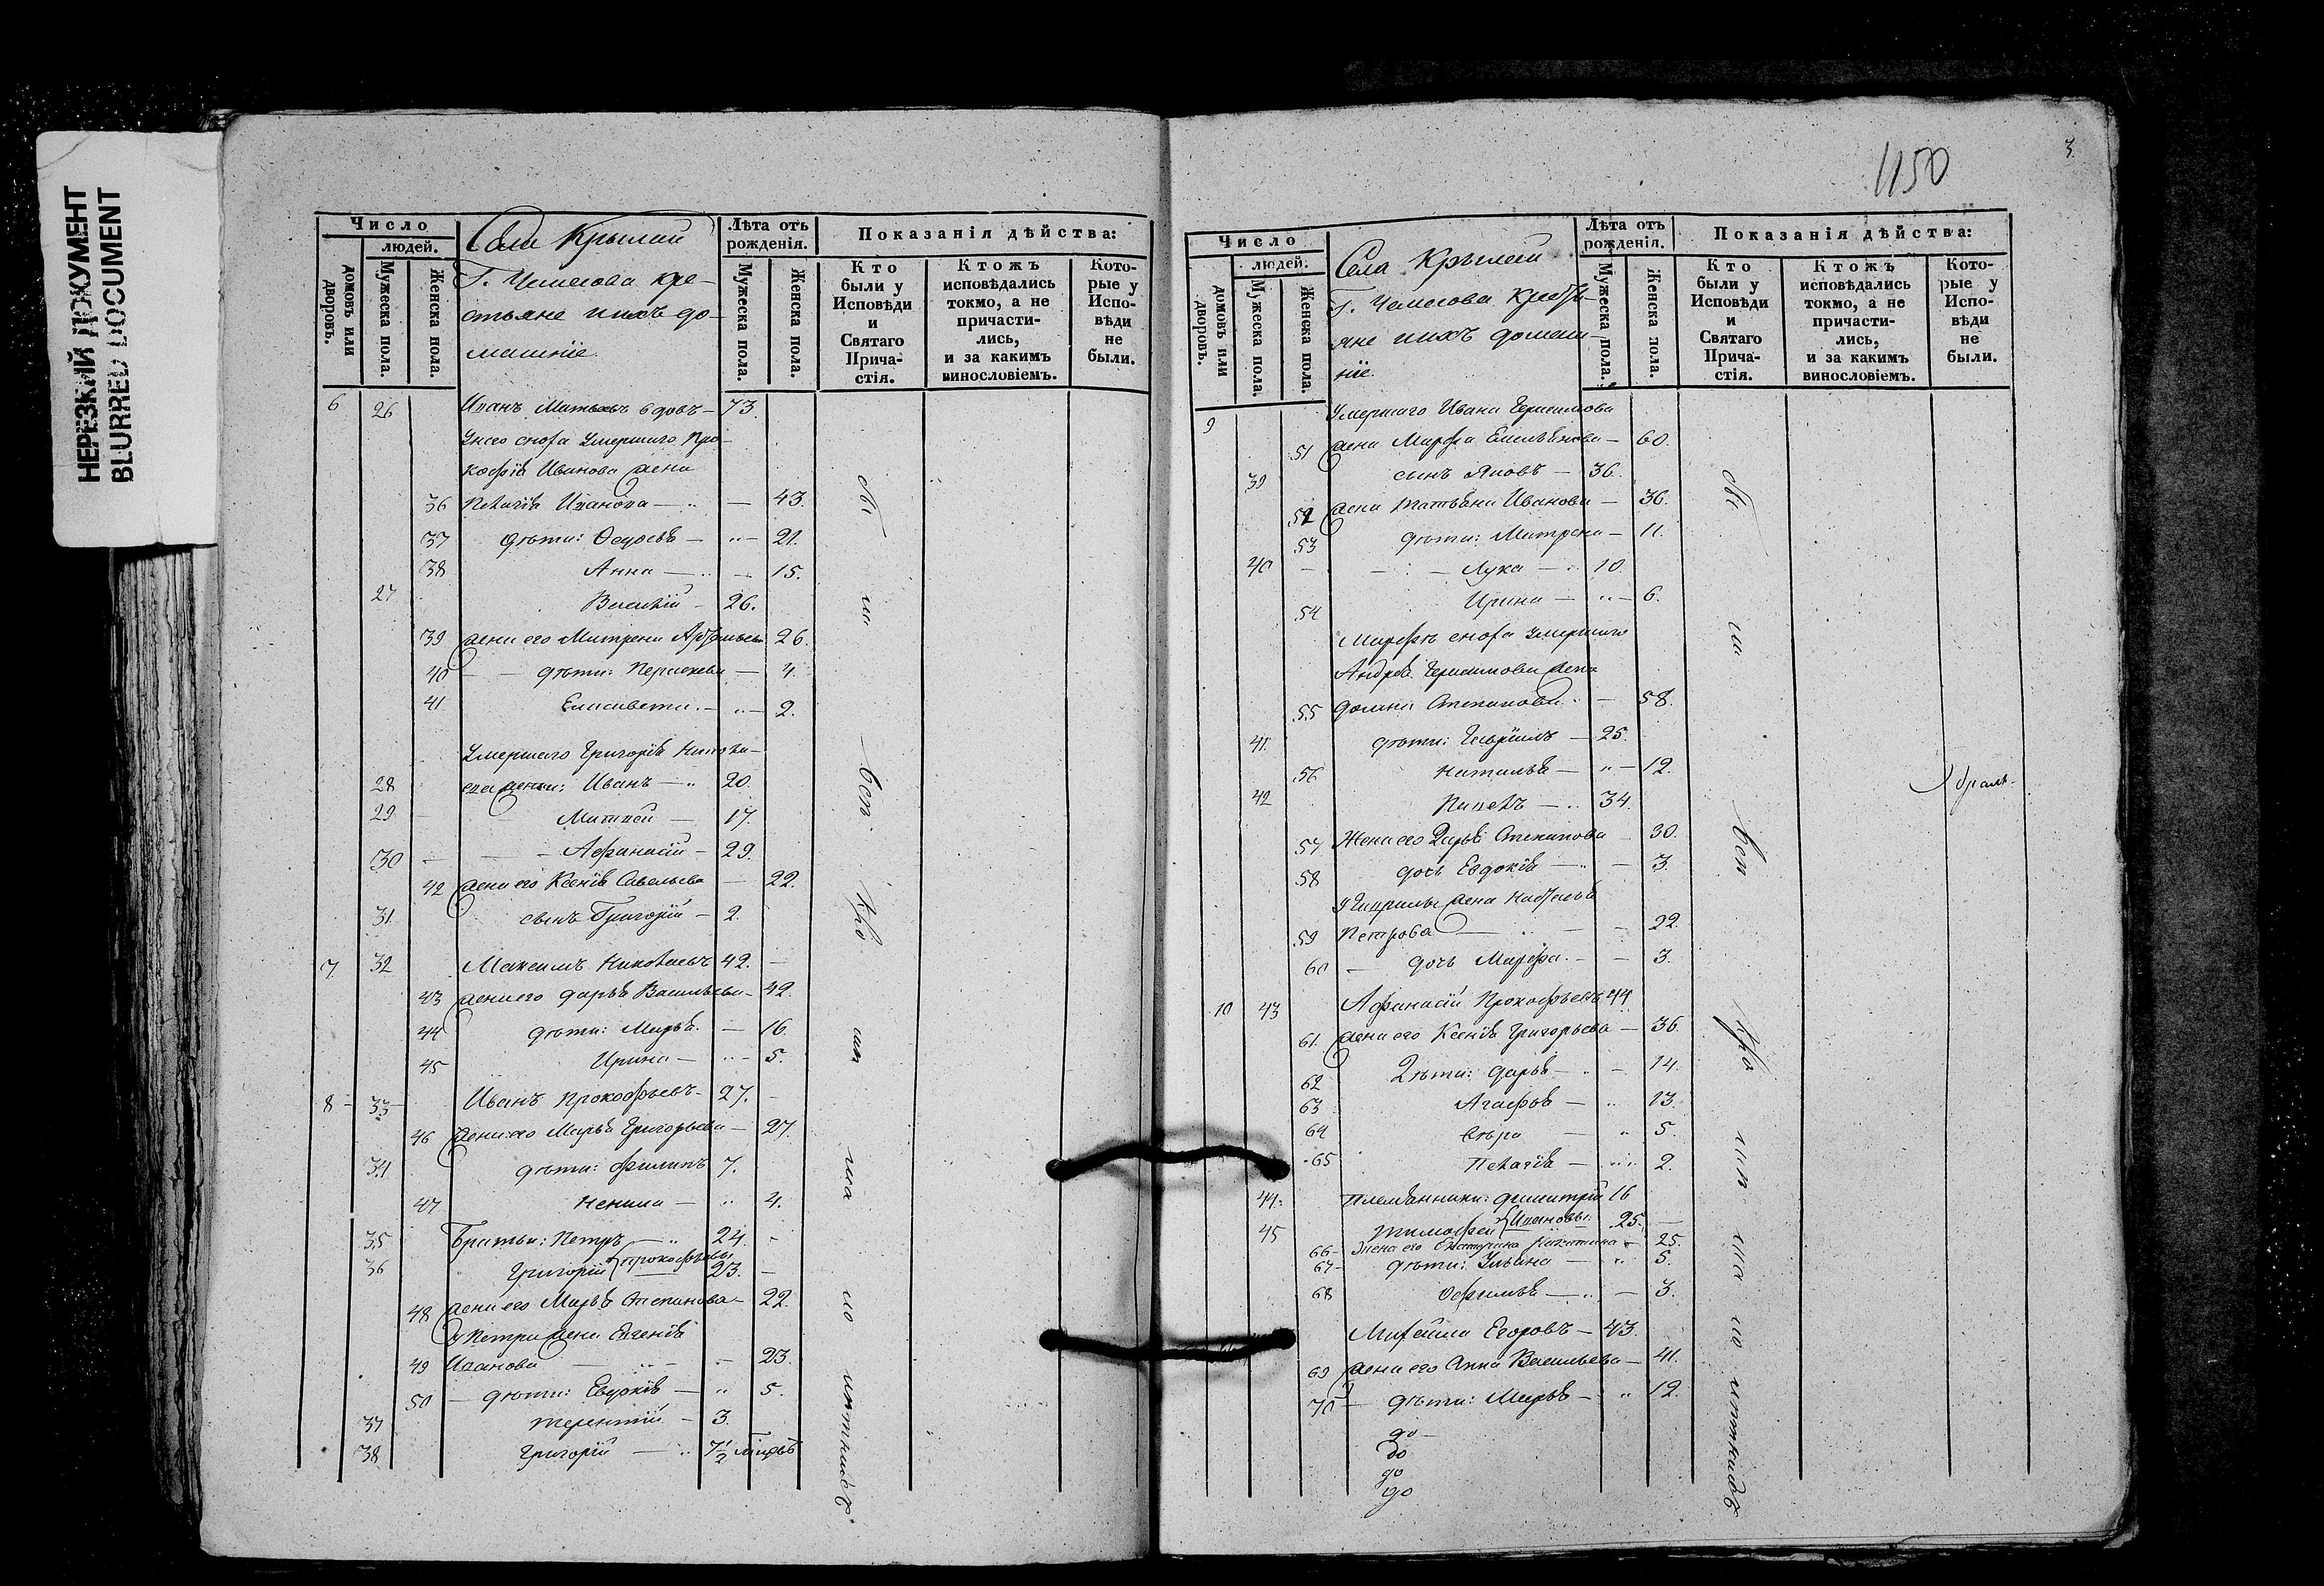 НЕРЕЗКИЙ ДОКУМЕНТ
BLURRED DOCUMENT
Число
людей.
домовъ или дворовъ.
Мужеска пола.
Женска пола.
Села
Г. кре-
стьяне ихъ до-
машніе.
Лѣта отъ рожденія.
Мужеска пола.
Женска пола.
Показанія дѣйства:
Кто были у Исповѣди и Святаго Прича-стія.
Ктожъ исповѣдались токмо, а не причасти-лись, и за какимъ винословіемъ.
Кото-рые у Испо-вѣди не были.
6 26 Иванъ вдовъ – 73.
У него сноха Умершаго Про-
кофія Иванова жена
36 Пелагія Иванова — 43.
37 дѣти: Ѳедосья — 21.
38 Анна — 15.
27 Василій – 26.
39 жена его Матрена 26.
40 дѣти: — 4.
41 Елисавета – 2.
Умершаго Григорія
28 Иванъ — 20.
29 Матвей — 17.
30 Афанасій – 29.
42 жена его Ксенія Савельева — 22.
31 сынъ Григорій – 2.
7 32 Максимъ Николаевъ 42.
43 жена его Дарья Васильева – 42.
44 дѣти: Марья – 16.
45 Ирина – 5.
8 33 Иванъ Прокофьевъ – 27.
46 жена его Марья Григорьева – 27.
34 дѣти: Филипъ 7.
47 Ненила – 4.
35 Братья: Петръ — 24.
36 Григорій { Прокофьевы 23.
48 жена его Марья Степанова – 22.
у Петра жена Евгенія
49 Иванова — 23.
50 — дѣти: Евдокія — 5.
37 Терентій – 3.
38 Григорій — 7 1/2
1150
3.
Число
людей.
домовъ или дворовъ.
Мужеска пола.
Женска пола.
Села
Г. кресть-
яне ихъ домаш-
ніе.
Лѣта отъ рожденія.
Мужеска пола.
Женска пола.
Показанія дѣйства:
Кто были у Исповѣди и Святаго Прича-стія.
Ктожъ исповѣдались токмо, а не причасти-лись, и за какимъ винословіемъ.
Кото-рые у Испо-вѣди не были.
9 Умершаго Ивана Герасимова
51 жена Марфа Емельянова – 60.
39 сынъ Яковъ – 36.
52 жена Татьяна Иванова – 36.
53 дѣти: Матрена – 11.
40 Лука — 10.
54 Ирина — 6.
Марфы сноха умершаго
Андрея Герасимова жена
55 Домна Степанова – 58.
41. дѣти: Гавріилъ – 25.
56 Наталья — 12.
42 Павелъ — 34.
57 Жена его Дарья Степанова 30.
58 дочь Евдокія — 3.
У Гаврилы жена Настасья
59 Петрова — 22.
60 — дочь Марфа – 3.
10 43 Афанасій Прокофьевъ 44
61. жена его Ксенія Григорьева – 36.
62 Дѣти: Дарья – 14.
63 Агафья — 13.
64 — 5.
65 Пелагія — 2.
44. Племянники: Димитрій 16
45 Тимофей { Ивановы 25.
66 – Жена его Екатерина Никитина – 25.
67 – дѣти: Ульяна — 5.
68 Офимья — 3.
Михайла Егоровъ – 43.
69 жена его Анна Васильева – 41.
70 – дѣти: Марья – 12.
до
до
до
до